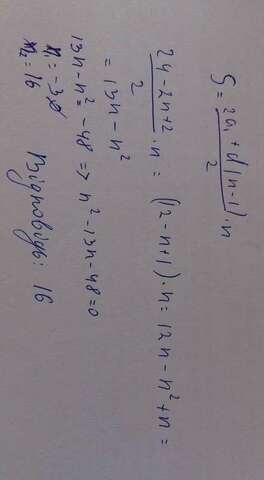 S = (2a₁ + d(n-1))/2 · n
(24 - 2n + 2)/2 · n = (12 - n + 1) · n = 12n - n² + n =
= 13n - n²
13n - n² = -48 => n² - 13n - 48 = 0
n₁ = -3
n₂ = 16
Відповідь: 16